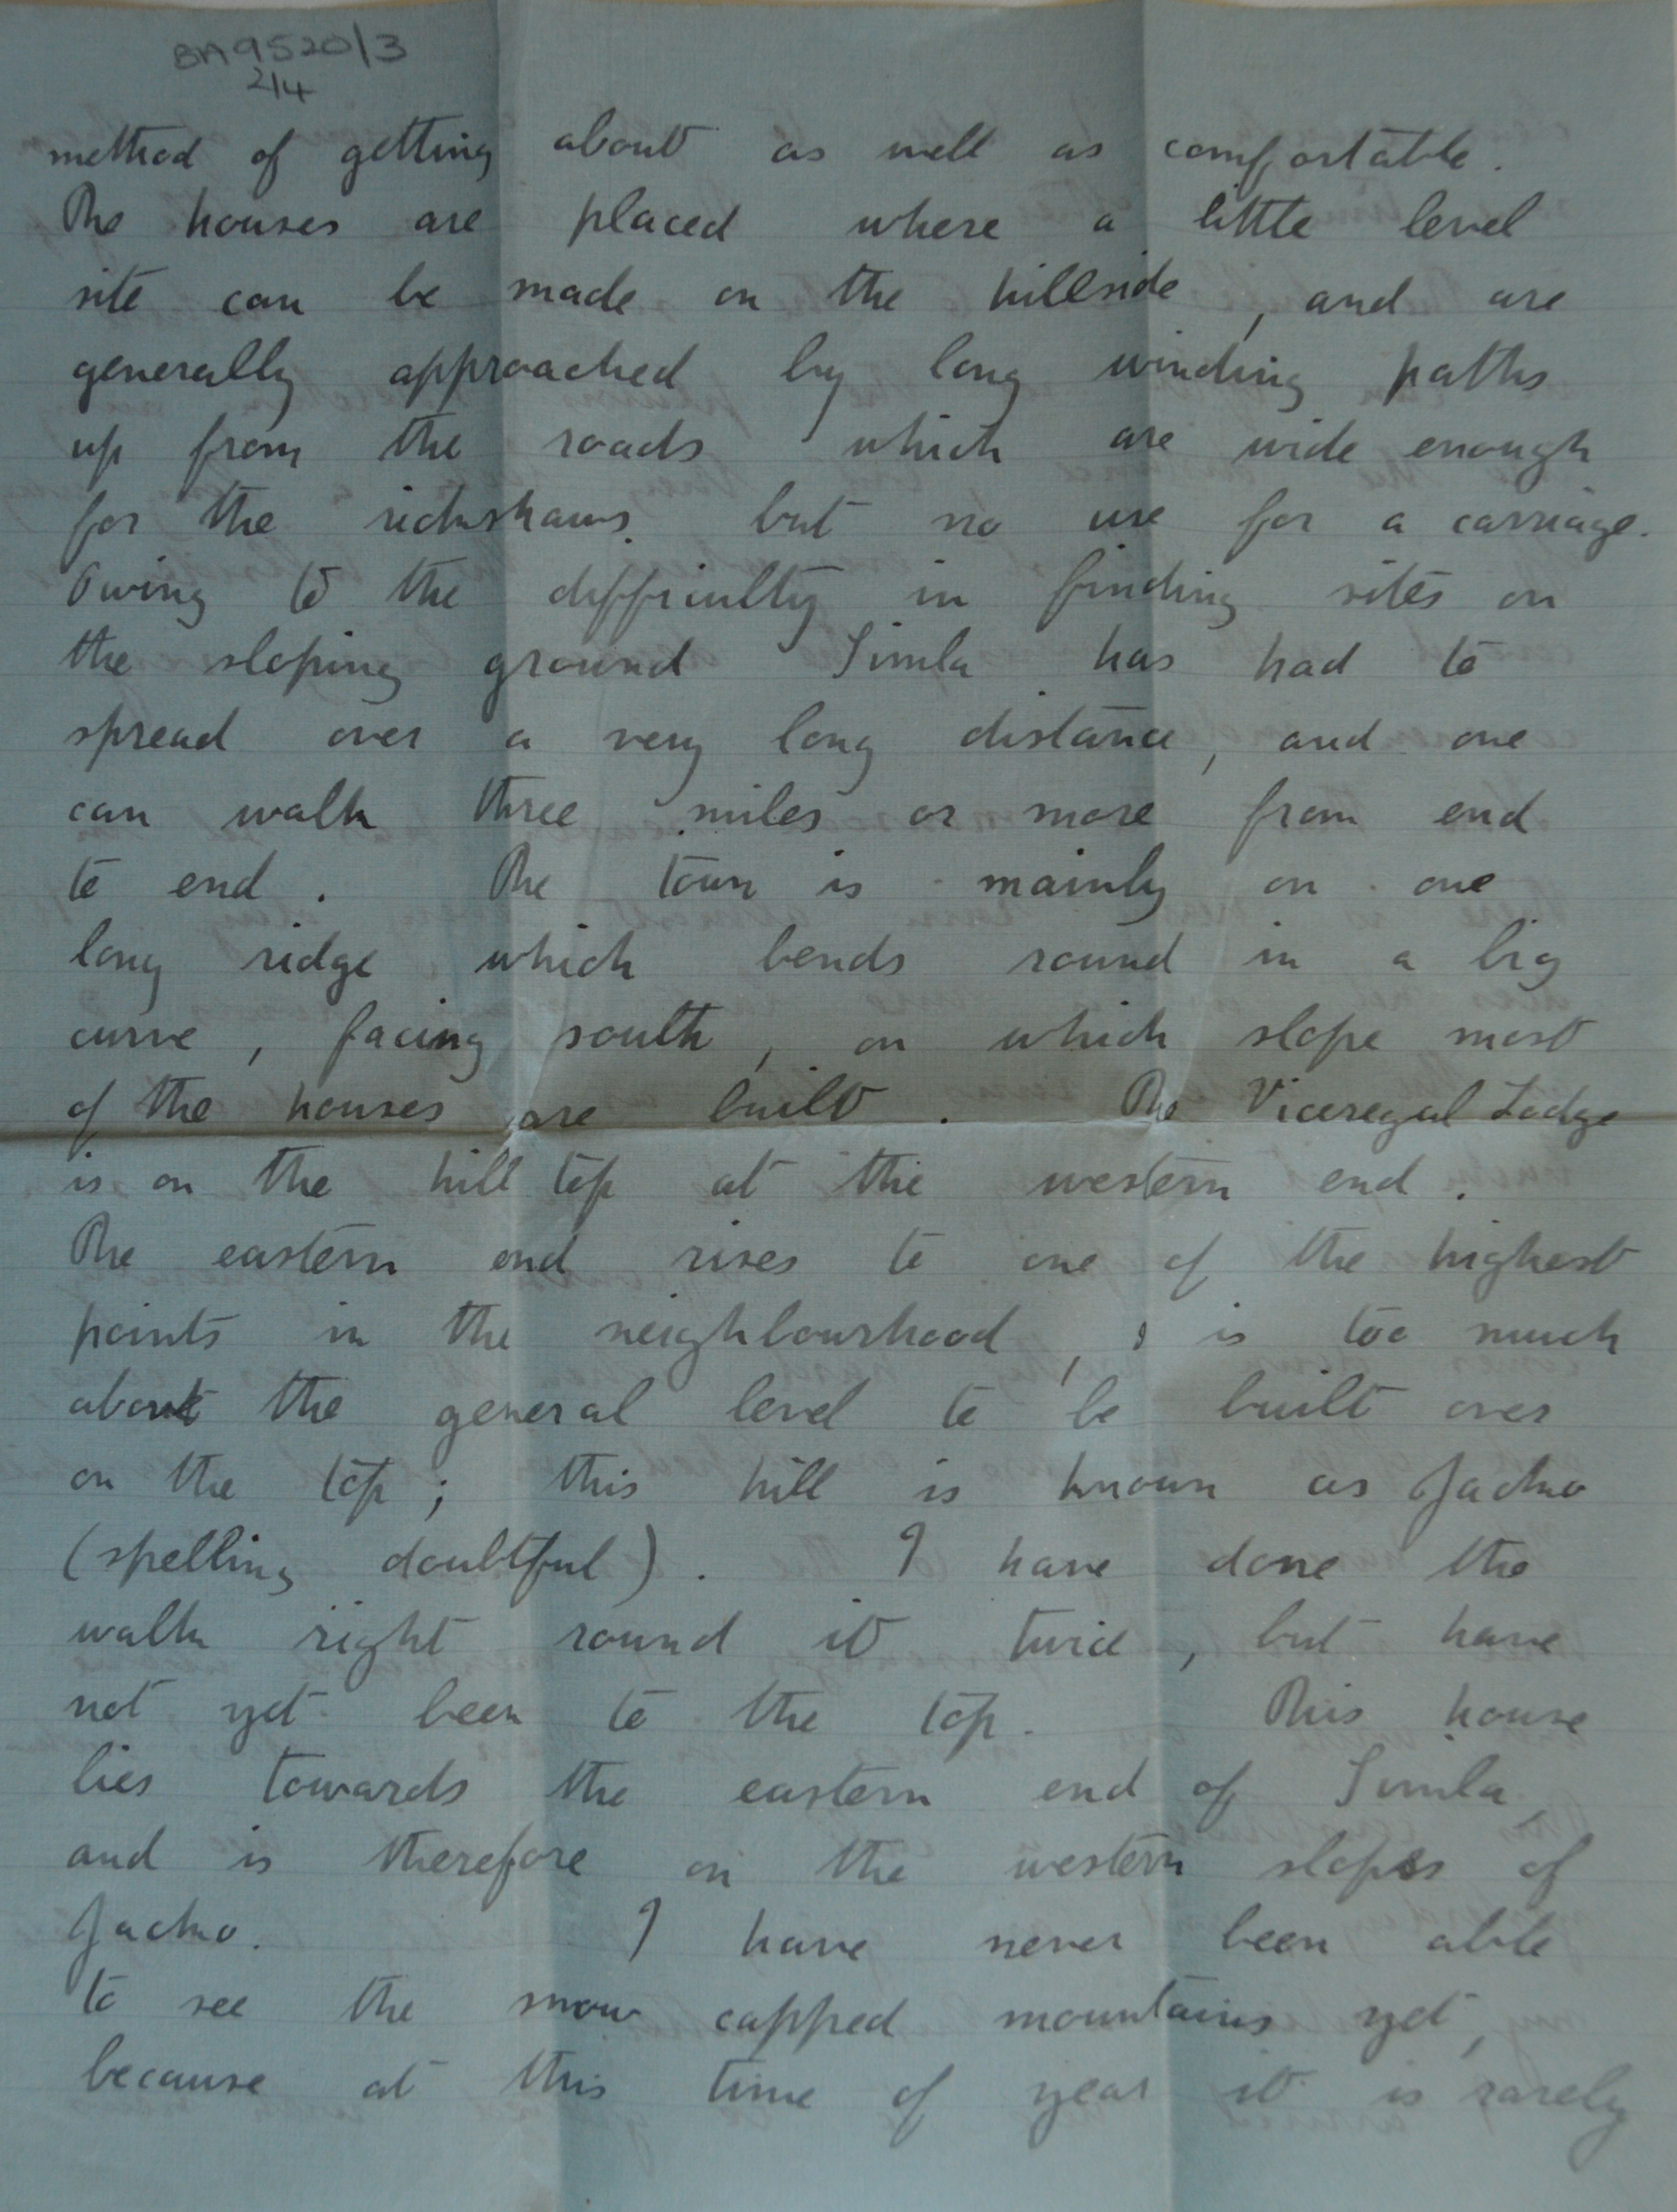 BA9520/3
2/4
method of getting about as well as comfortable.
The houses are placed where a little level
site can be made on the hillside, and are
generally approached by long winding paths
up from the roads which are wide enough
for the rickshaws but no use for a carriage.
Owing to the difficulty in finding sites on
the sloping ground Simla has had to
spread over a very long distance, and one
can walk three miles or more from end
to end. The town is mainly on one
long ridge which bends round in a big
curve, facing south, on which slope most
of the houses are built. The Viceregal Lodge
is on the hill top at the western end.
The eastern end rises to one of the highest
points in the neighbourhood, & is too much
about the general level to be built over
on the top; this hill is known as Jacko
(spelling doubtful). I have done the
walk right round it twice, but have
not yet been to the top. This house
lies towards the eastern end of Simla,
and is therefore on the western slopes of
Jacko. I have never been able
to see the snow capped mountains yet,
because at this time of year it is rarely